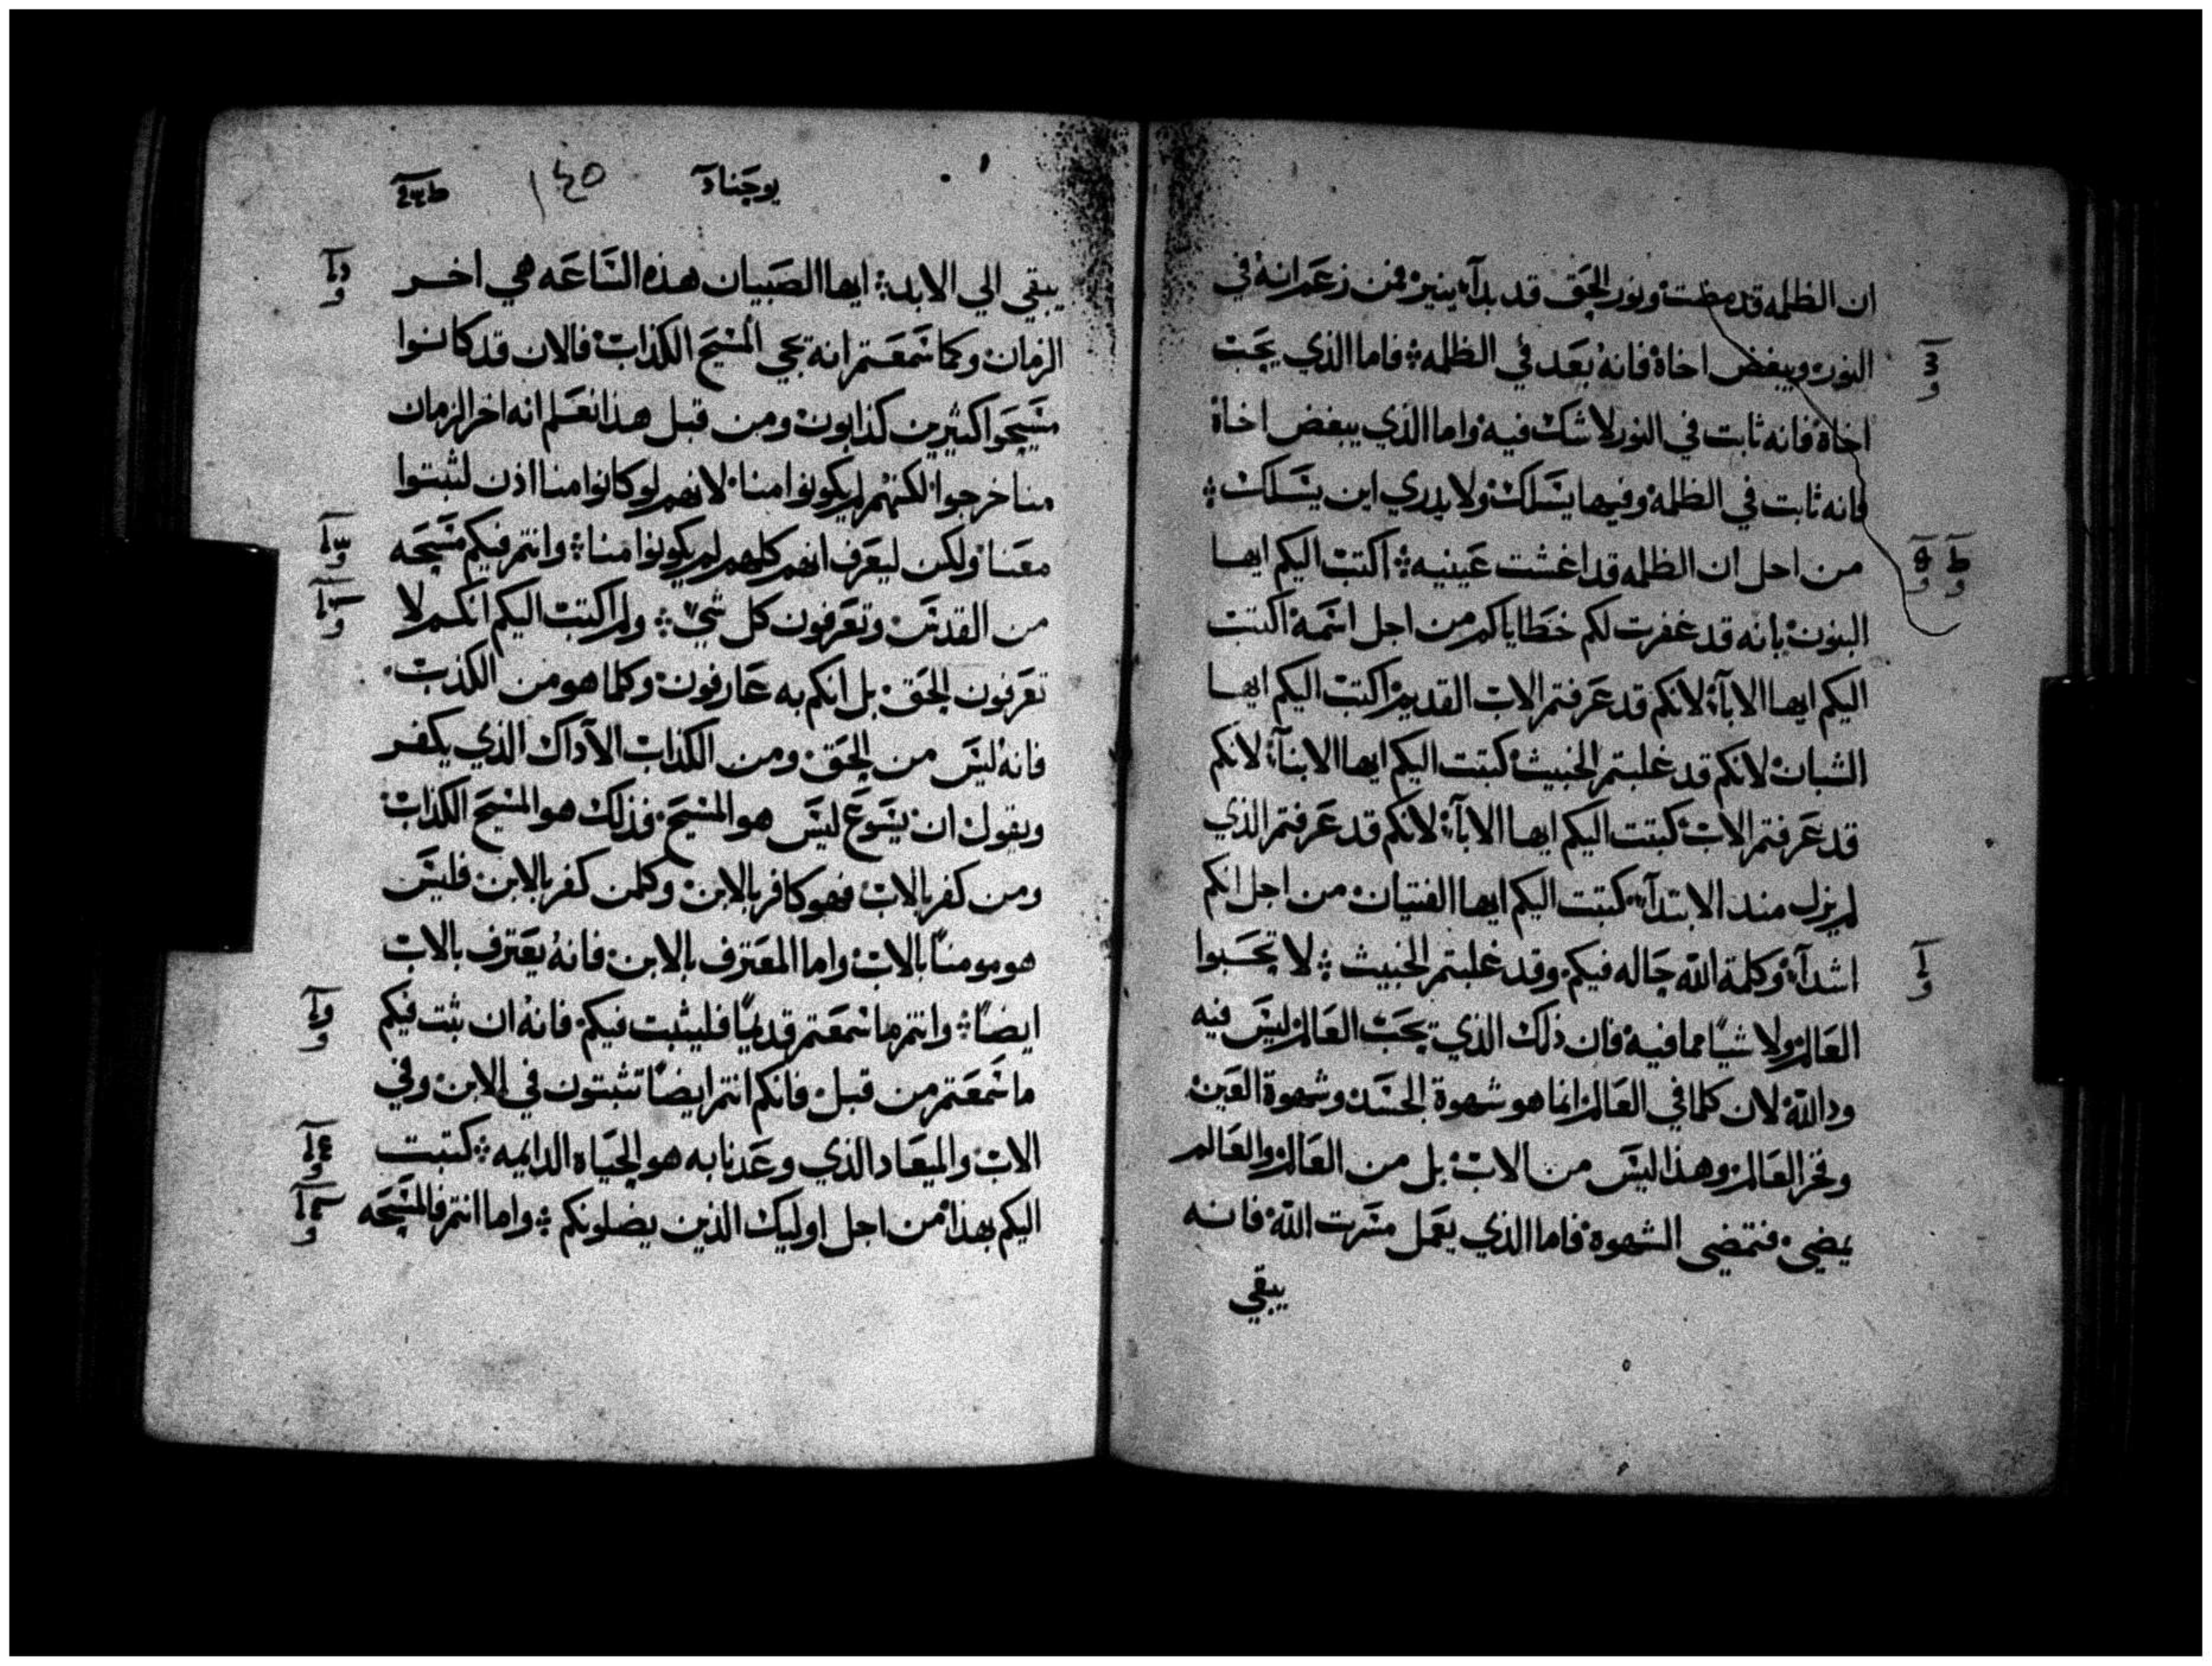 ان الظلمه قد مضت ونور الحق قد بدآء ينير فمن زعم انه في
النور ويبغض اخاة فانه بعد في الظلمه فاما الذي يحب
اخاة فانه ثابت في النور لا شك فيه واما الذي يبغض اخاة
فانه ثابت في الظلمة وفيها يسلك ولا يدري اين يسلك
من اجل ان الظلمه قد اغشت عينيه اكتب اليكم ايها
البنون بانه قد غفرت لكم خطاياكم من اجل اسمه اكتب
اليكم ايها الابآء لانكم قد عرفتم الاب القديم اكتب اليكم ايها
الشبان لانكم قد غلبتم الخبيث كتبت اليكم ايها الابنآء لانكم
قد عرفتم الاب كتبت اليكم ايها الابآء لانكم قد عرفتم الذي
لم يزل منذ الابتدآء كتبت اليكم ايها الفتيان من اجل انكم
اشدآء وكلمة الله حاله فيكم وقد غلبتم الخبيث لا تحبوا
العالم ولا شياً مما فيه فان ذلك الذي يحب العالم ليس فيه
ود الله لان كلما في العالم انما هو شهوة الجسد وشهوة العين
وفخر العالم وهذا ليس من الاب بل من العالم والعالم
يمضي فتمضي الشهوة فاما الذي يعمل مسرت الله فانه
يبقي
يوحنا
١٤٥
يبقي الي الابد ايها الصبيان هذه الساعه هي اخر
الزمان وكما سمعتم انه يجي المسيح الكذاب فالان قد كانوا
مسيحوا كثيرين كذابون ومن قبل هذا نعلم انه اخر الزمان
منا خرجوا لكنهم لم يكونوا منا لانهم لو كانوا منا اذن لثبتوا
معنا ولكن ليعرف انهم كلهم لم يكونوا منا وانتم فيكم مسيحه
من القدس وتعرفون كل شي ولم اكتب اليكم انكم لا
تعرفون الحق بل انكم به عارفون وكلما هو من الكذب
فانه ليس من الحق ومن الكذاب الا ذاك الذي يكفر
ويقول ان يسوع ليس هو المسيح فذلك هو المسيح الكذاب
ومن كفر بالاب فهو كافر بالابن وكلمن كفر بالابن فليس
هو مومناً بالاب واما المعترف بالابن فانه يعترف بالاب
ايضاً وانتم ما سمعتم قديماً فليثبت فيكم فانه ان ثبت فيكم
ما سمعتم من قبل فانكم انتم ايضاً تثبتون في الابن وفي
الاب والميعاد الذي وعدنا به هو الحياه الدايمه كتبت
اليكم بهذا من اجل اوليك الذين يضلونكم واما انتم فالمسيحه